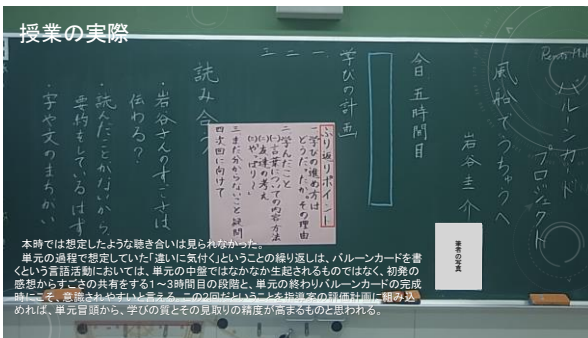 授業の実際
バルーンカード
プロジェクト
風船でうちゅうへ
岩谷圭介
今日 五時間目
学びの計画
一
二
三
読み合う
・岩谷さんのすごさは
伝わる?
・読んだことがないから
要約をしているはず
・字や文のまちがい
ふり返りポイント
一 学びの進め方は
どうだったか。その理由
二 学んだこと
(一)言葉についての内容方法
(二)友達の考え
三 まだ分からないこと疑問
四 次回に向けて
筆者の写真
本時では想定したような聴き合いは見られなかった。
単元の過程で想定していた「違いに気付く」ということの繰り返しは、バルーンカードを書
くという言語活動においては、単元の中盤ではなかなか生起されるものではなく、初発の
感想からすごさの共有をする1~3時間目の段階と、単元の終わりバルーンカードの完成
時にこそ、意識されやすいと言える。この2回だということを指導案の評価計画に組み込
めれば、単元冒頭から、学びの質とその見取りの精度が高まるものと思われる。